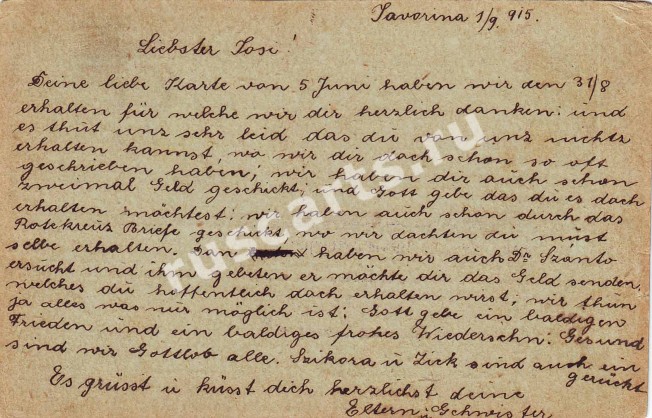 Javorina 1/9. 915.
Liebster Josi!
Deine liebe Karte von 5 Juni haben wir den 31/8
erhalten für welche wir dir herzlich danken: und
es thut unz sehr leid das du von unz nichtz
erhalten kannst, wo wir dir doch schon so oft
geschrieben haben; wir haben dir auch schon
zweimal Geld geschickt; und Gott gebe das du es doch
erhalten möchtest: wir haben auch schon durch das
Rotekreuz Briefe geschickt, wo wir dachten du müst
selbe erhalten. Dan haben wir auch Dr Szanto
ersucht und ihm gebeten er möchte dir das Geld senden.
welches du hoffentlich doch erhalten wirst; wir thun
ja alles was nur möglich ist: Gott gebe ein baldigen
Frieden und ein baldiges frohes Wiedersehn: Gesund
sind wir Gottlob alle. Szikora u Zick sind auch ein
gerückt
Es grüsst u küsst dich herzlichst deine
Eltern u Geschwister
ruscarts.ru